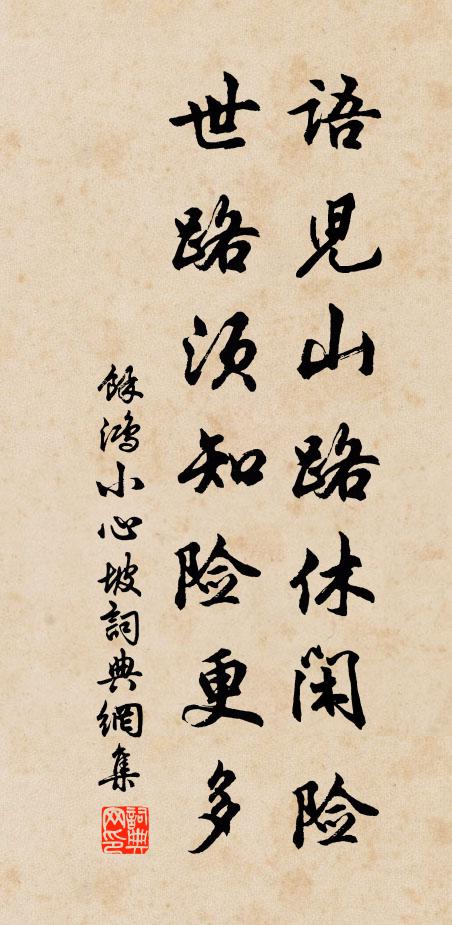 語児山路休閑险
世路须知险更多
馀鸿小心坡詞典網集
詞典網印